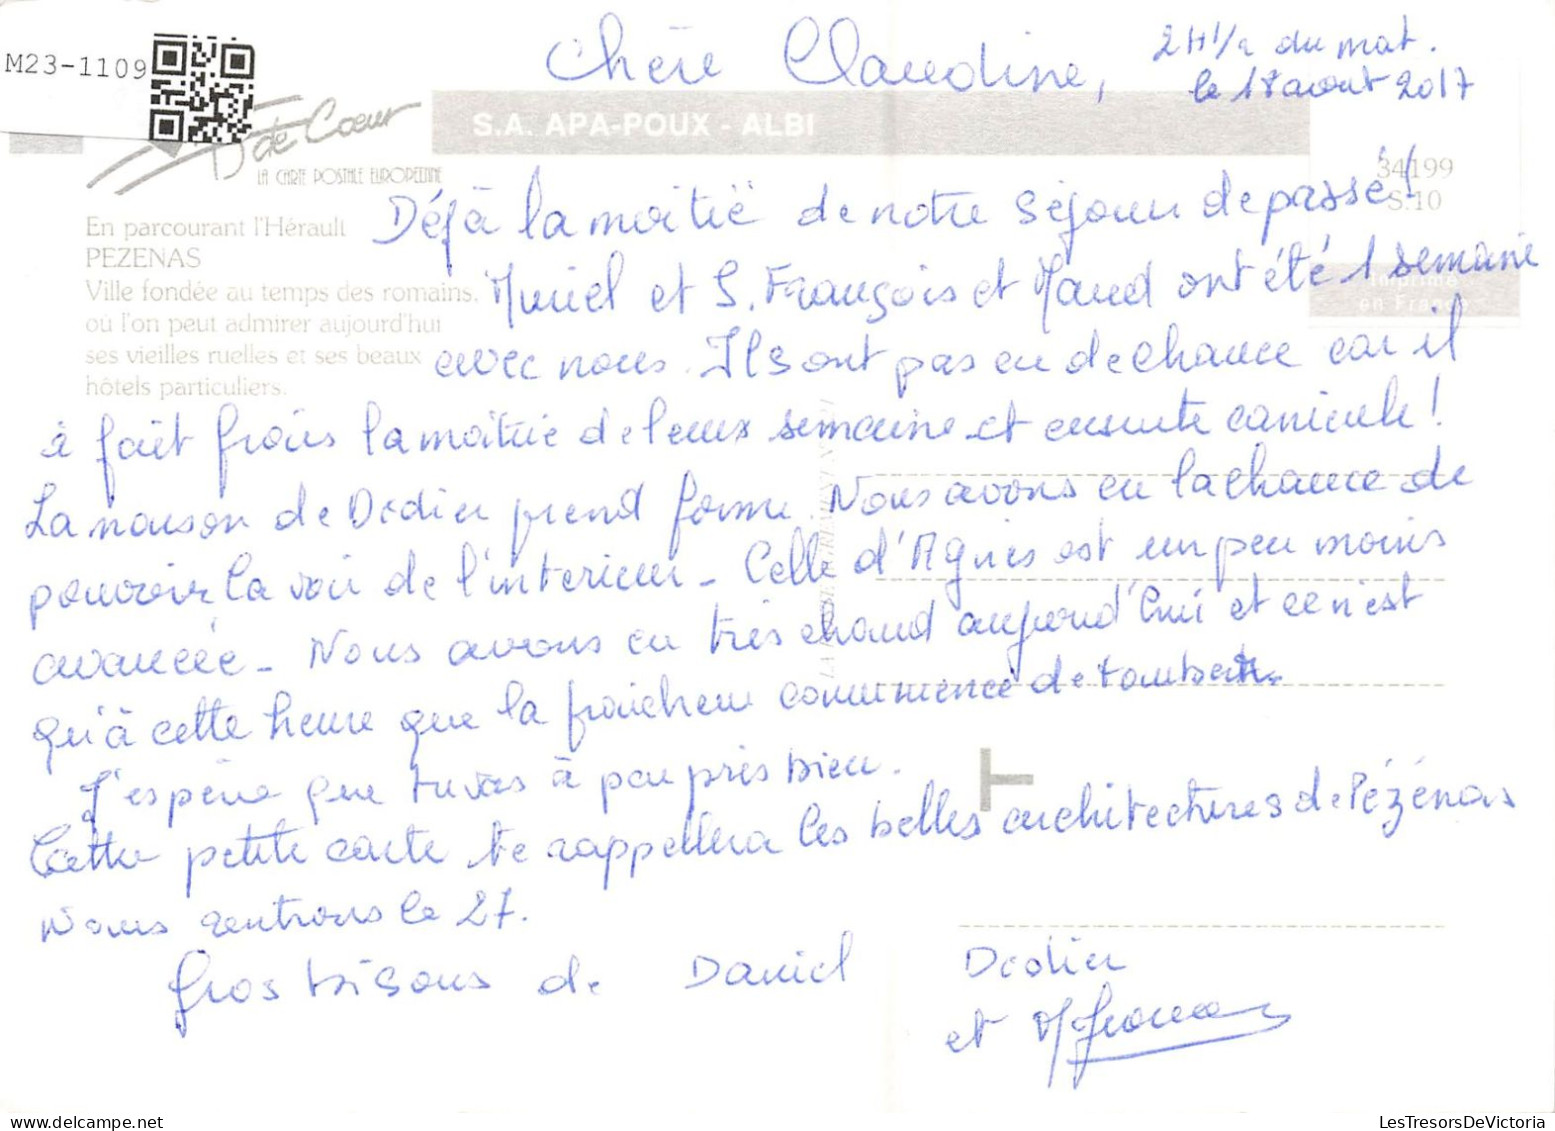 M23-1109
Chère Claudine,
2H1/2 du mat.
le 18 aout 2017
de Coeur
LA CARTE POSTALE EUROPEENNE
S.A. APA-POUX - ALBI
34199
S.10
Imprimé
en France
En parcourant l'Hérault
PEZENAS
Ville fondée au temps des romains.
où l'on peut admirer aujourd'hui
ses vieilles ruelles et ses beaux
hôtels particuliers.
Déjà la moitié de notre séjour de passé !
Muriel et S. François et Maud ont été 1 semaine
avec nous. Ils ont pas eu de chance car il
à fait frais la moitié de leur semaine et ensuite canicule !
La maison de Didier prend forme. Nous avons eu la chance de
pouvoir la voir de l'interieur - Celle d'Agnès est un peu moins
avancée - Nous avons eu très chaud aujourd'hui et ce n'est
qu'à cette heure que la fraicheur commence de tomber.
J'espère que tu vas à peu près bien.
Cette petite carte te rappellera les belles architectures de Pézénas
Nous rentrons le 27.
Gros bisous de Daniel Didier
et
LesTresorsDeVictoria